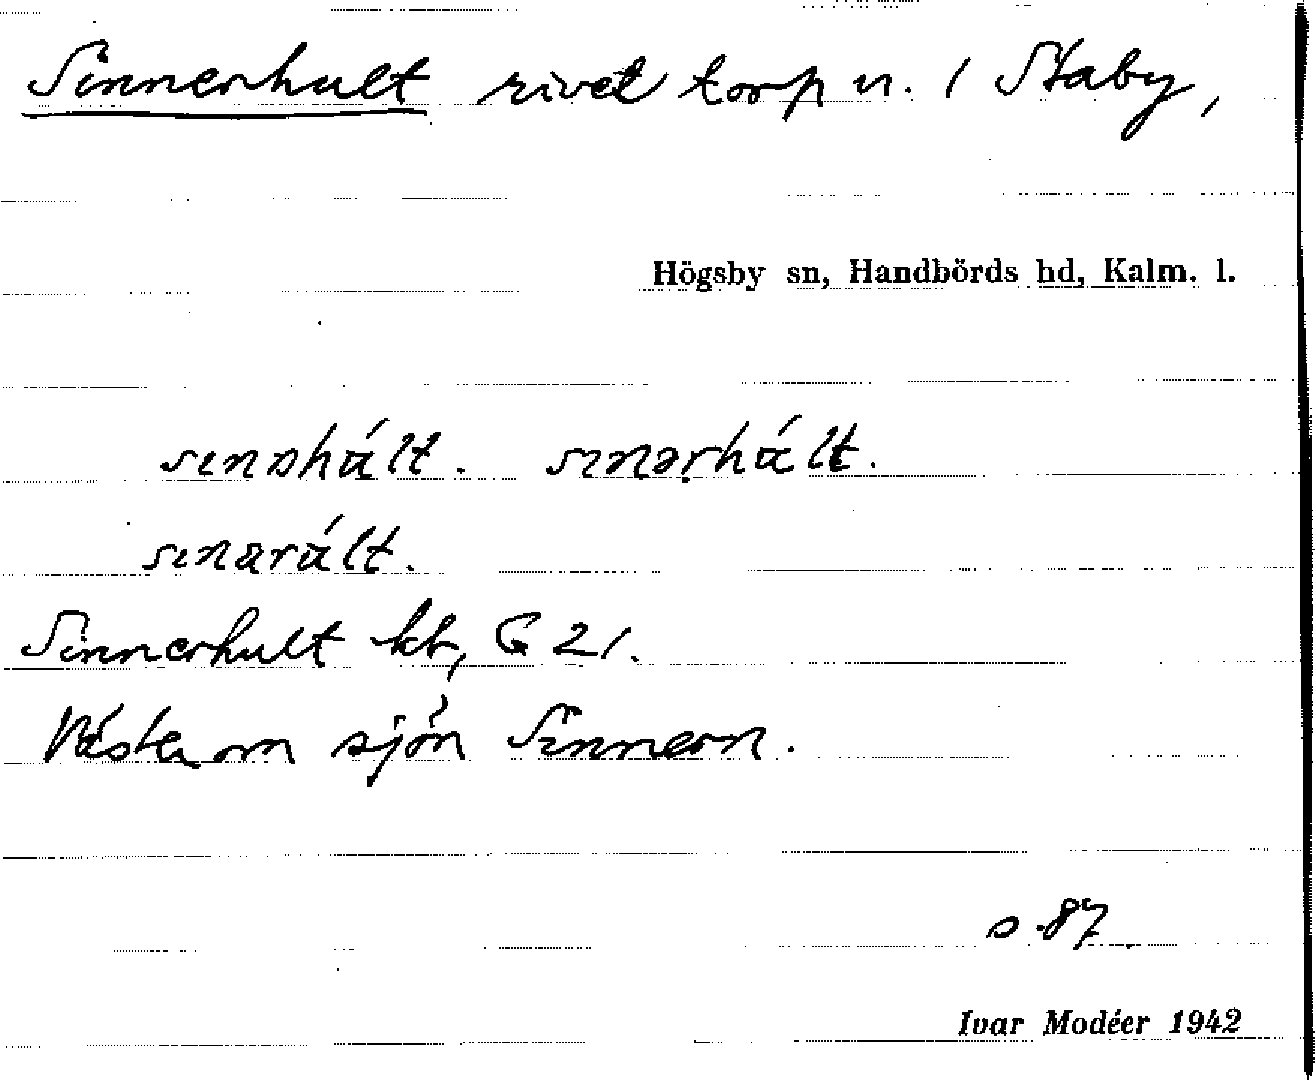 Sinnerhult rivet torp u. 1 Staby,
Högsby sn, Handbörds hd, Kalm. l.
sınəhúlt. sınərhúlt.
sınarúlt.
Sinnerhult kb, G 21.
Väster om sjön Sinnern.
s. 87
Ivar Modéer 1942